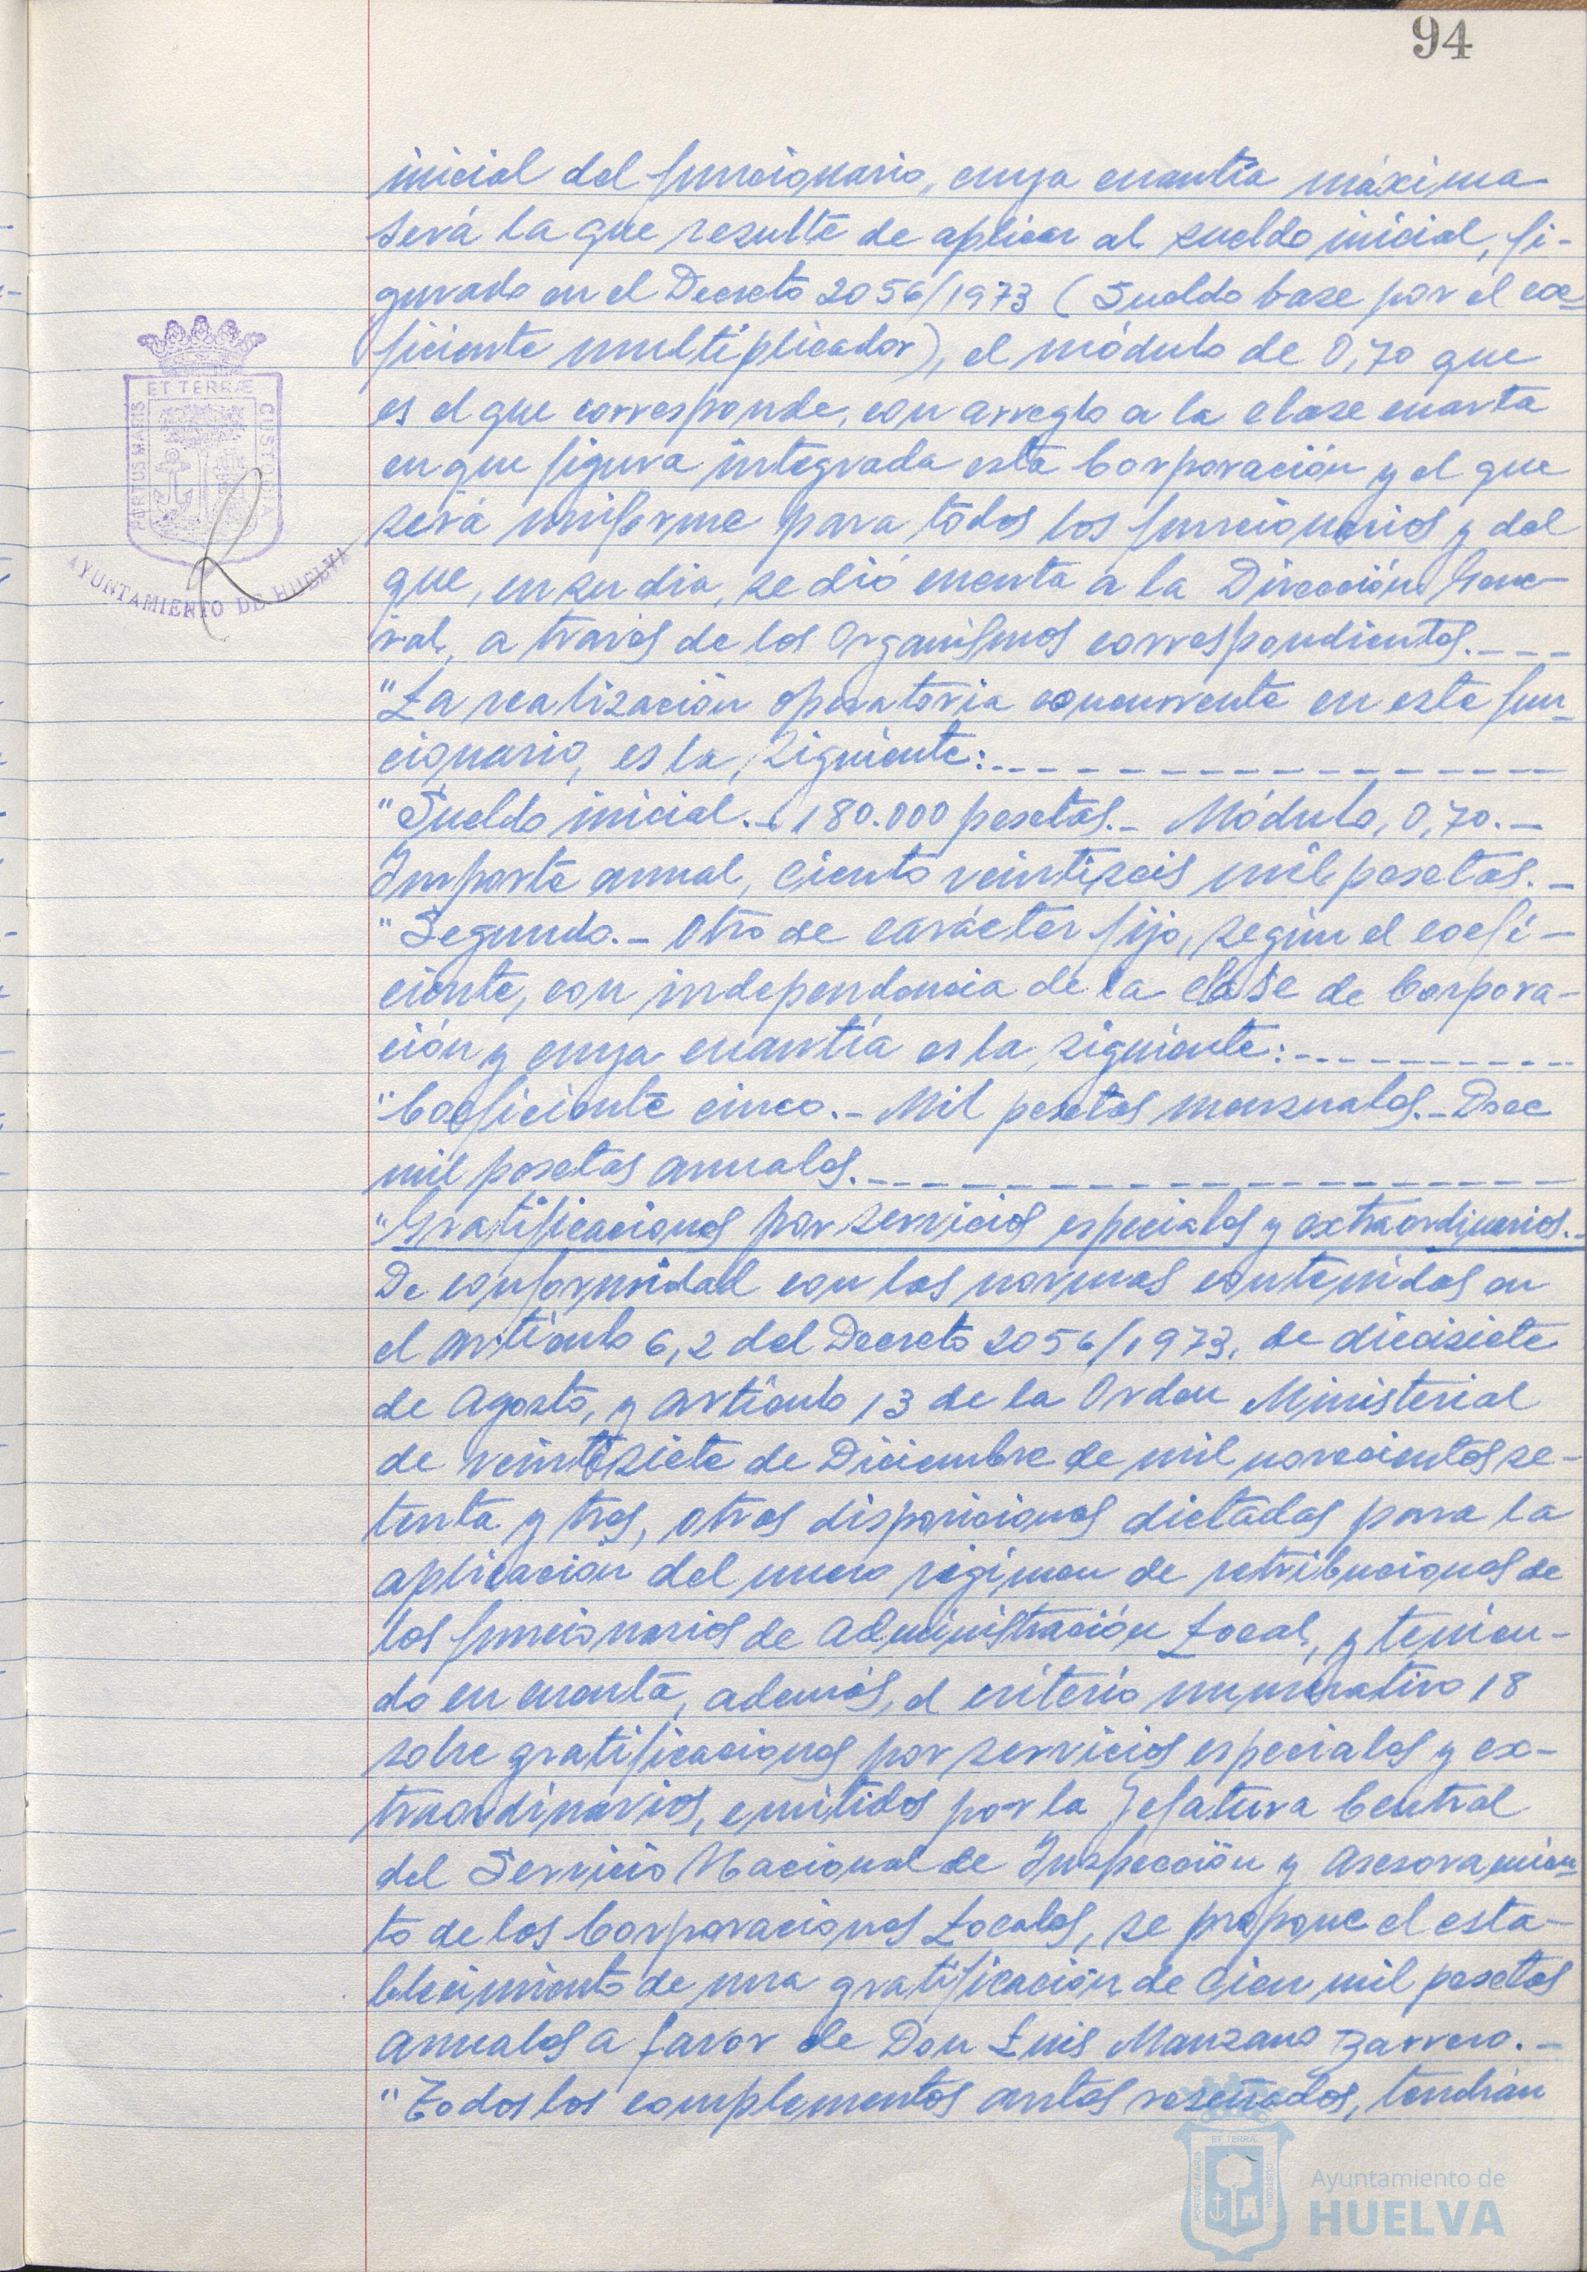 94
inicial del funcionario, cuya cuantía máxima
será la que resulte de aplicar al sueldo inicial, fi-
gurado en el Decreto 2056/1973 (Sueldo base por el coe-
ficiente multiplicador), el módulo de 0,70 que
es el que corresponde, con arreglo a la clase cuarta
en que figura integrada esta Corporación y el que
será uniforme para todos los funcionarios y del
que, en su dia, se dió cuenta a la Dirección Gene-
ral, a través de los Organismos correspondientes.---
"La realización operatoria concurrente en este fun-
cionario, es la siguiente:---
"Sueldo inicial.- 180.000 pesetas.- Módulo, 0,70.-
Importe anual, ciento veintiseis mil pesetas.-
"Segundo.- Otro de carácter fijo, según el coefi-
ciente, con independencia de la clase de Corpora-
ción y cuya cuantía es la siguiente:---
"Coeficiente cinco.- Mil pesetas mensuales.- Doce
mil pesetas anuales.---
"Gratificaciones por servicios especiales y extraordinarios.-
De conformidad con las normas contenidas en
el artículo 6,2 del Decreto 2056/1973, de diecisiete
de Agosto, y artículo 13 de la Orden Ministerial
de veintisiete de Diciembre de mil novecientos se-
tenta y tres, otras disposiciones dictadas para la
aplicación del nuevo régimen de retribuciones de
los funcionarios de Administración Local, y tenien-
do en cuenta, además, el criterio numerativo 18
sobre gratificaciones por servicios especiales y ex-
traordinarios, emitidos por la Jefatura Central
del Servicio Nacional de Inspección y Asesoramien-
to de las Corporaciones Locales, se propone el esta-
blecimiento de una gratificación de cien mil pesetas
anuales a favor de Don Luis Manzano Barrero.-
"Todos los complementos antes reseñados, tendrán
PORTUS MARIS
ET TERRÆ
CUSTODIA
AYUNTAMIENTO DE HUELVA
Ayuntamiento de
HUELVA